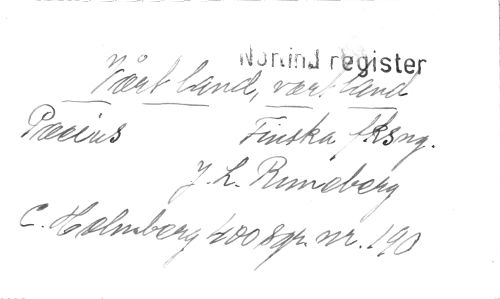 Norlind register
Vårt land, vårt land
Pacius Finska fksng.
J. L. Runeberg
C. Holmberg 400 sgr. nr. 190